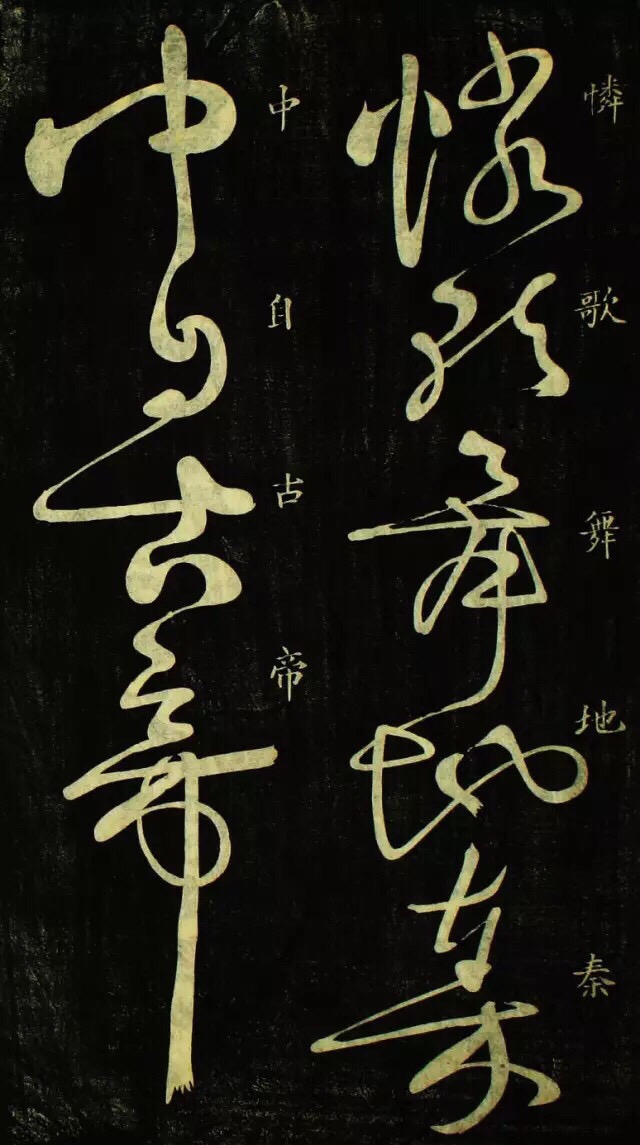 憐歌舞地秦
中自古帝